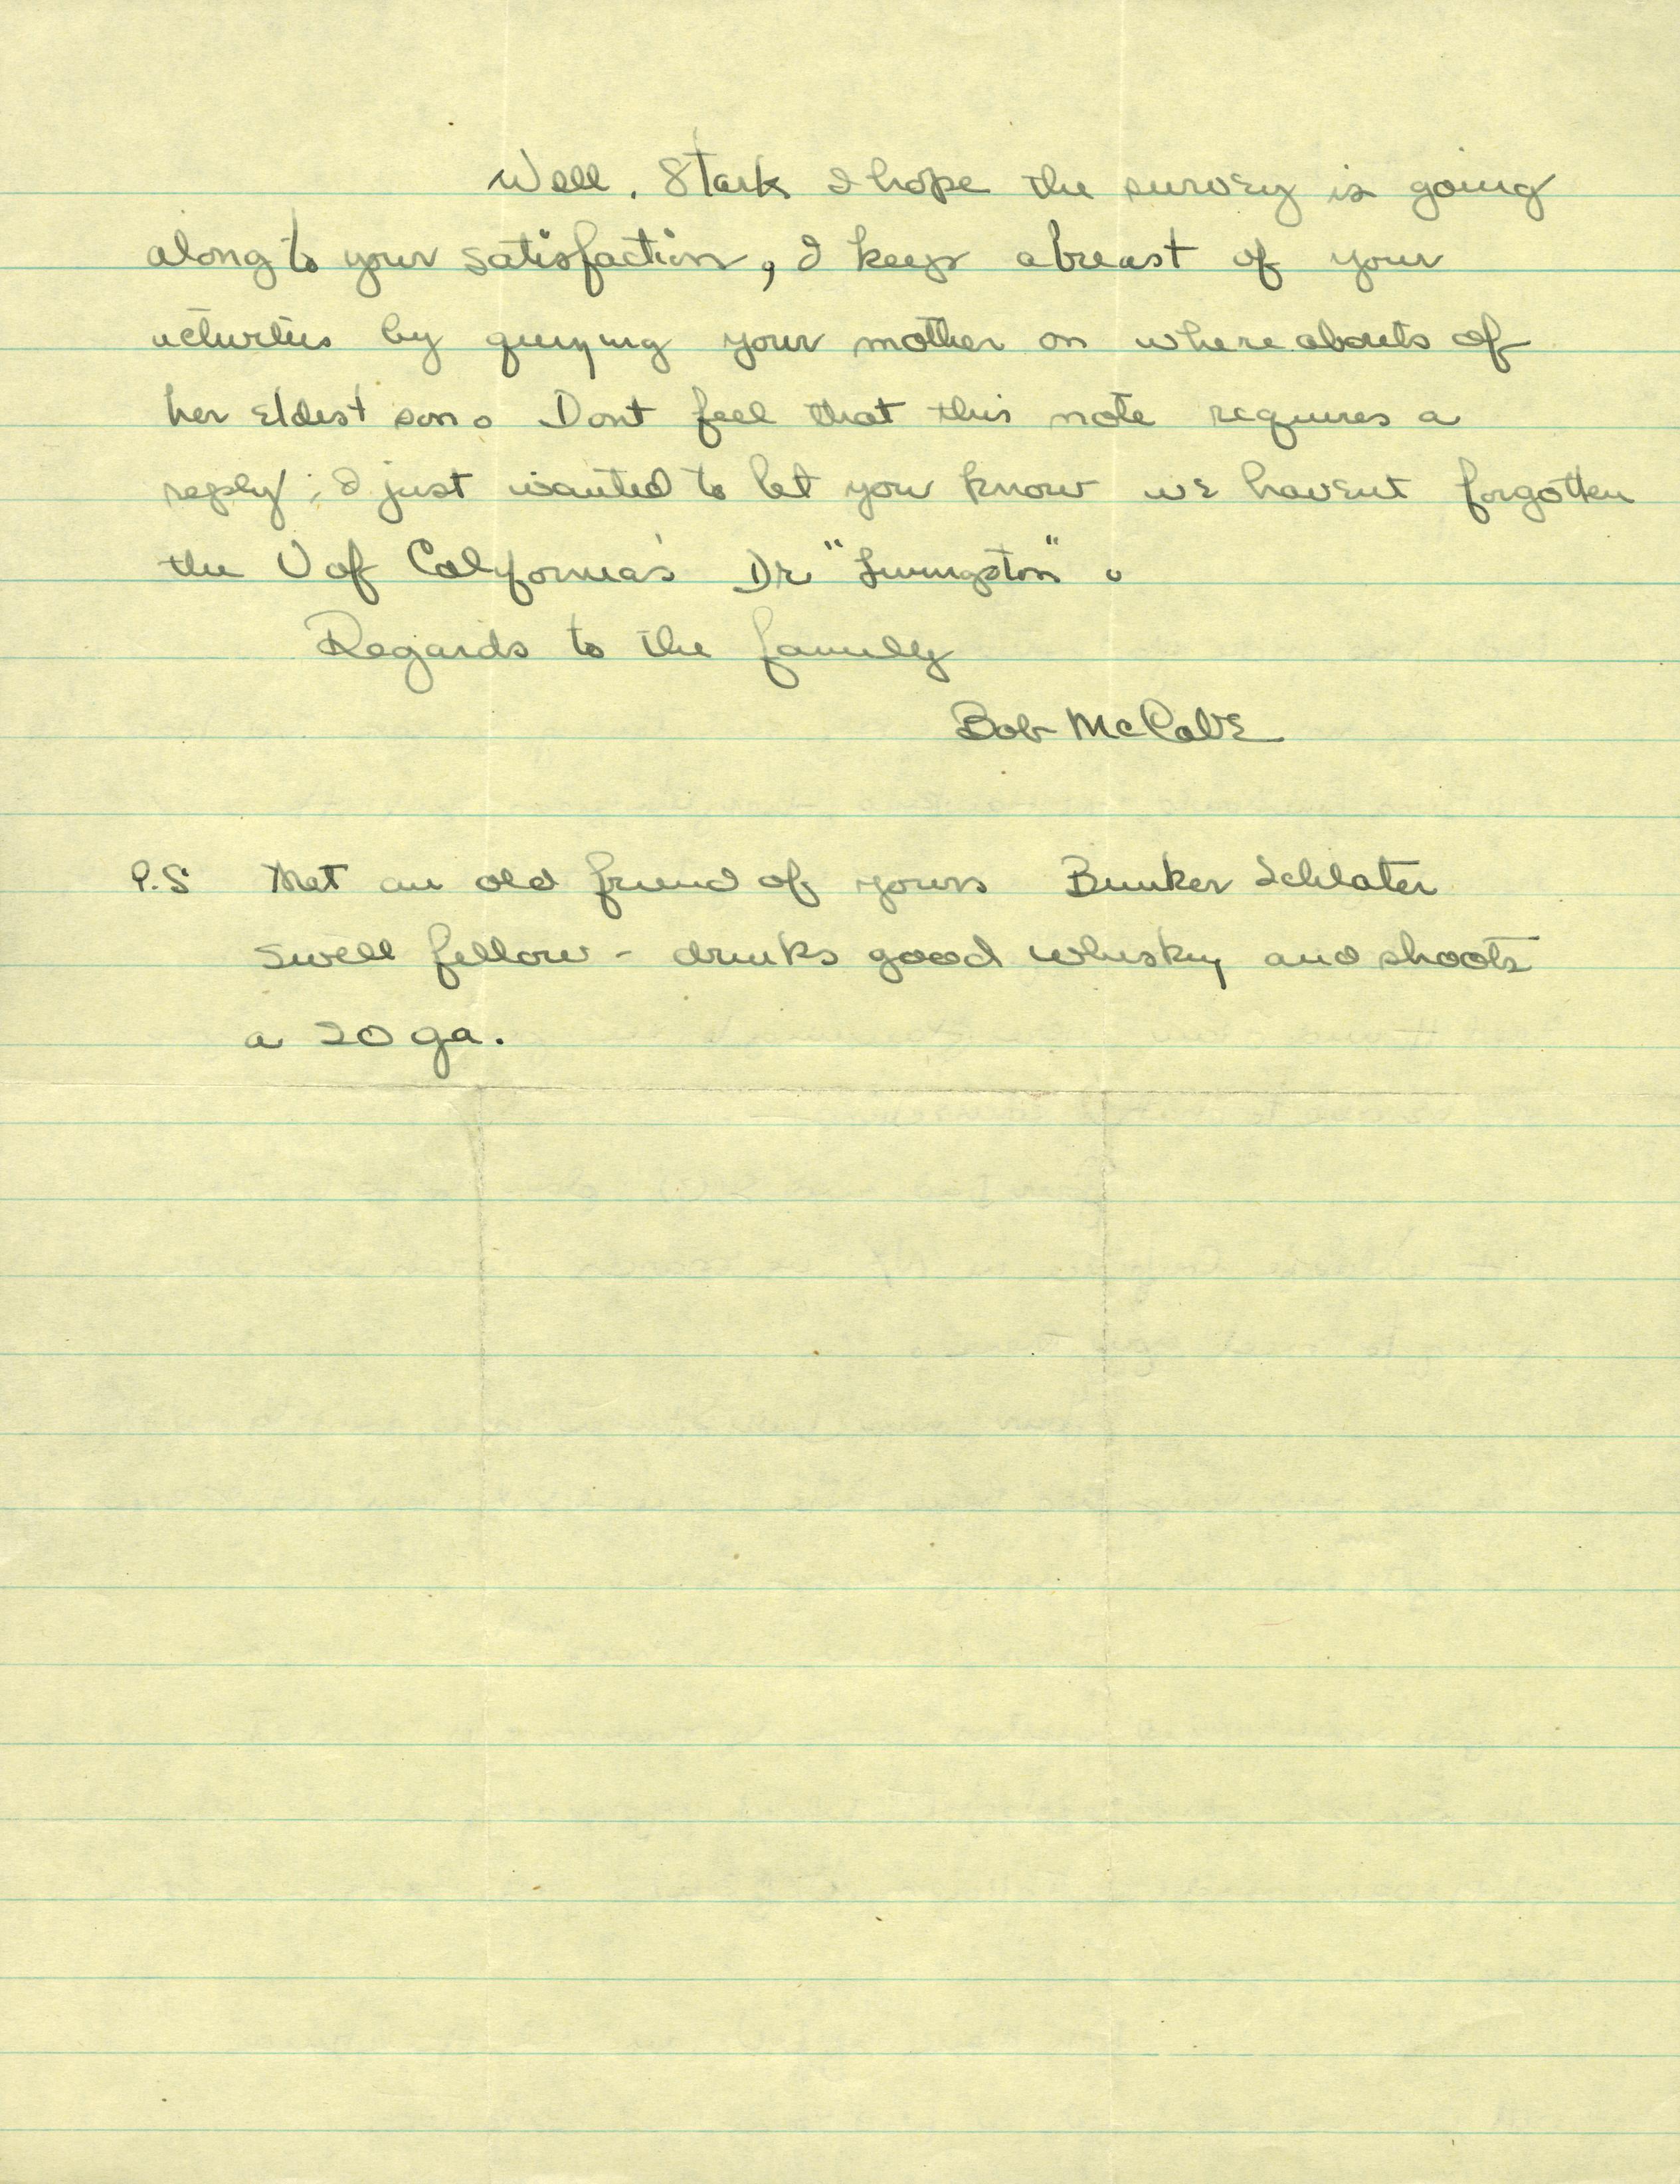 Well. Stark I hope the survey is going
along to your satisfaction, I keep abreast of your
activities by querying your mother on whereabouts of
her eldest son. Dont feel that this note requires a
reply; I just wanted to let you know we havent forgotten
the U of California's Dr "Livingston".
Regards to the family
Bob McCabe
P.S Met an old friend of yours Bunker Schlater
swell fellow - drinks good whiskey and shoots
a 20 ga.